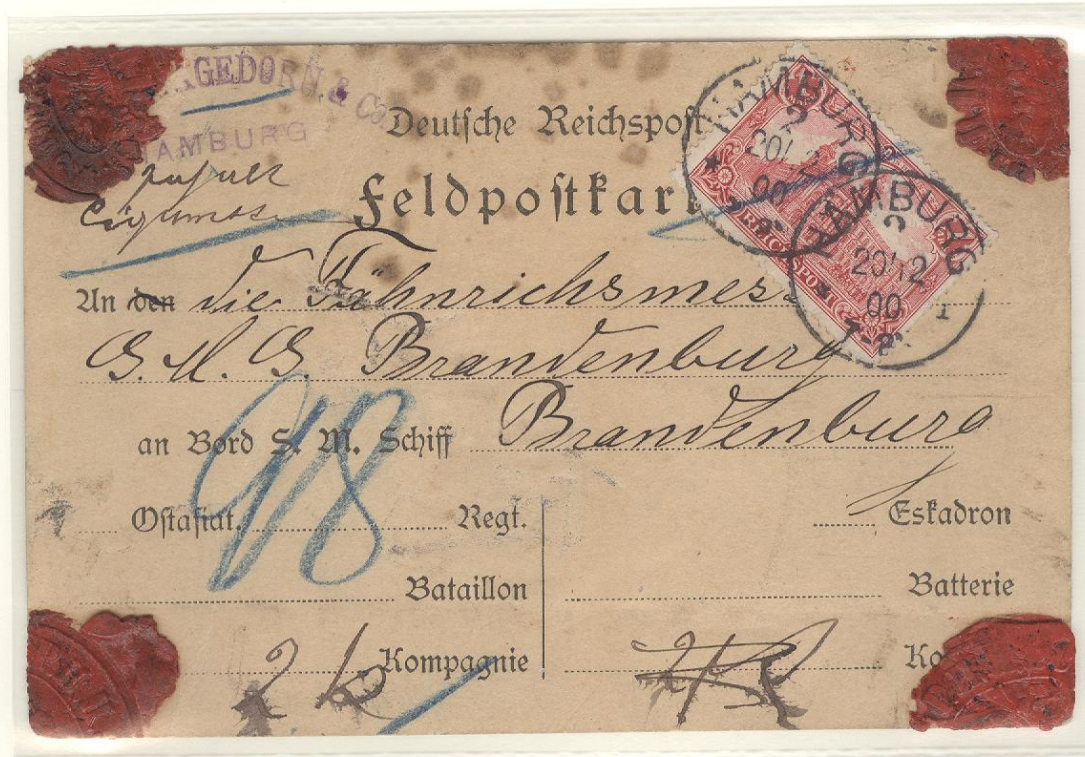 GEDORN & Co
HAMBURG
Deutsche Reichspost
Feldpostkart
HAMBURG
2
20/12
00
HAMBURG
2
20/12
00
7-8
REICHSPOST
An den die Fähnrichsmess
S. M. S. Brandenburg
an Bord S. M. Schiff Brandenburg
918
Ostasiat. Regt.
Eskadron
Bataillon
Batterie
2 k Kompagnie
Ko